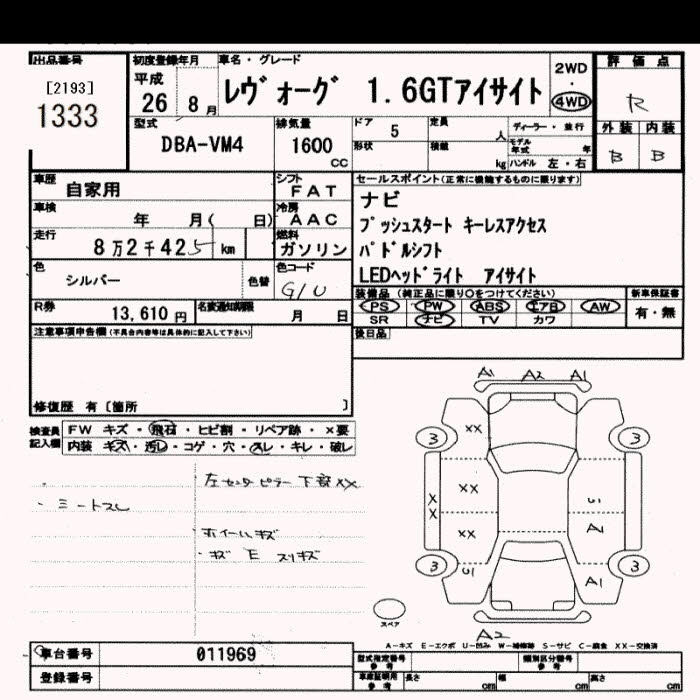 出品番号 初度登録年月 車名・グレード 評価点
[2193] 平成 レヴォーグ 1.6GTアイサイト 2WD R
1333 26 8月 4WD
型式 排気量 ドア 5 定員 人 ディーラー・並行 外装 内装
DBA-VM4 1600 CC 形状 積載 kg モデル年式 年 B B
ハンドル 左・右
車歴 自家用 シフト FAT セールスポイント(正常に機能するものに限ります)
車検 年 月( 日) 冷房 AAC ナビ
走行 8万2千425km 燃料 ガソリン プッシュスタート キーレスアクセス
パドルシフト
色 シルバー 色替 色コード G1U LEDヘッドライト アイサイト
R券 13,610円 名変通知期限 月 日 装備品(純正品に限り○をつけてください) 新車保証書
PS PW ABS エアB AW 有・無
SR ナビ TV カワ
注意事項申告欄(不具合内容等は具体的に記入して下さい) 後日品
修復歴 有〔箇所 〕
検査員記入欄 FW キズ・飛石・ヒビ割・リペア跡・×要
内装 キズ・汚レ・コゲ・穴・スレ・キレ・破レ
・シートスレ
左センターピラー下部XX
ホイールキズ
・キズ E スリキズ
A1 A2 A1
3 XX 3
XX XX U1
XX A1
3 U1 A1 3
スペア A2
A-キズ E-エクボ U-凹み W-補修跡 S-サビ C-腐食 XX-交換済
車台番号 011969 型式指定番号 参考 類別区分番号 参考
登録番号 車庫証明用 参考 長さ cm 幅 cm 高さ cm